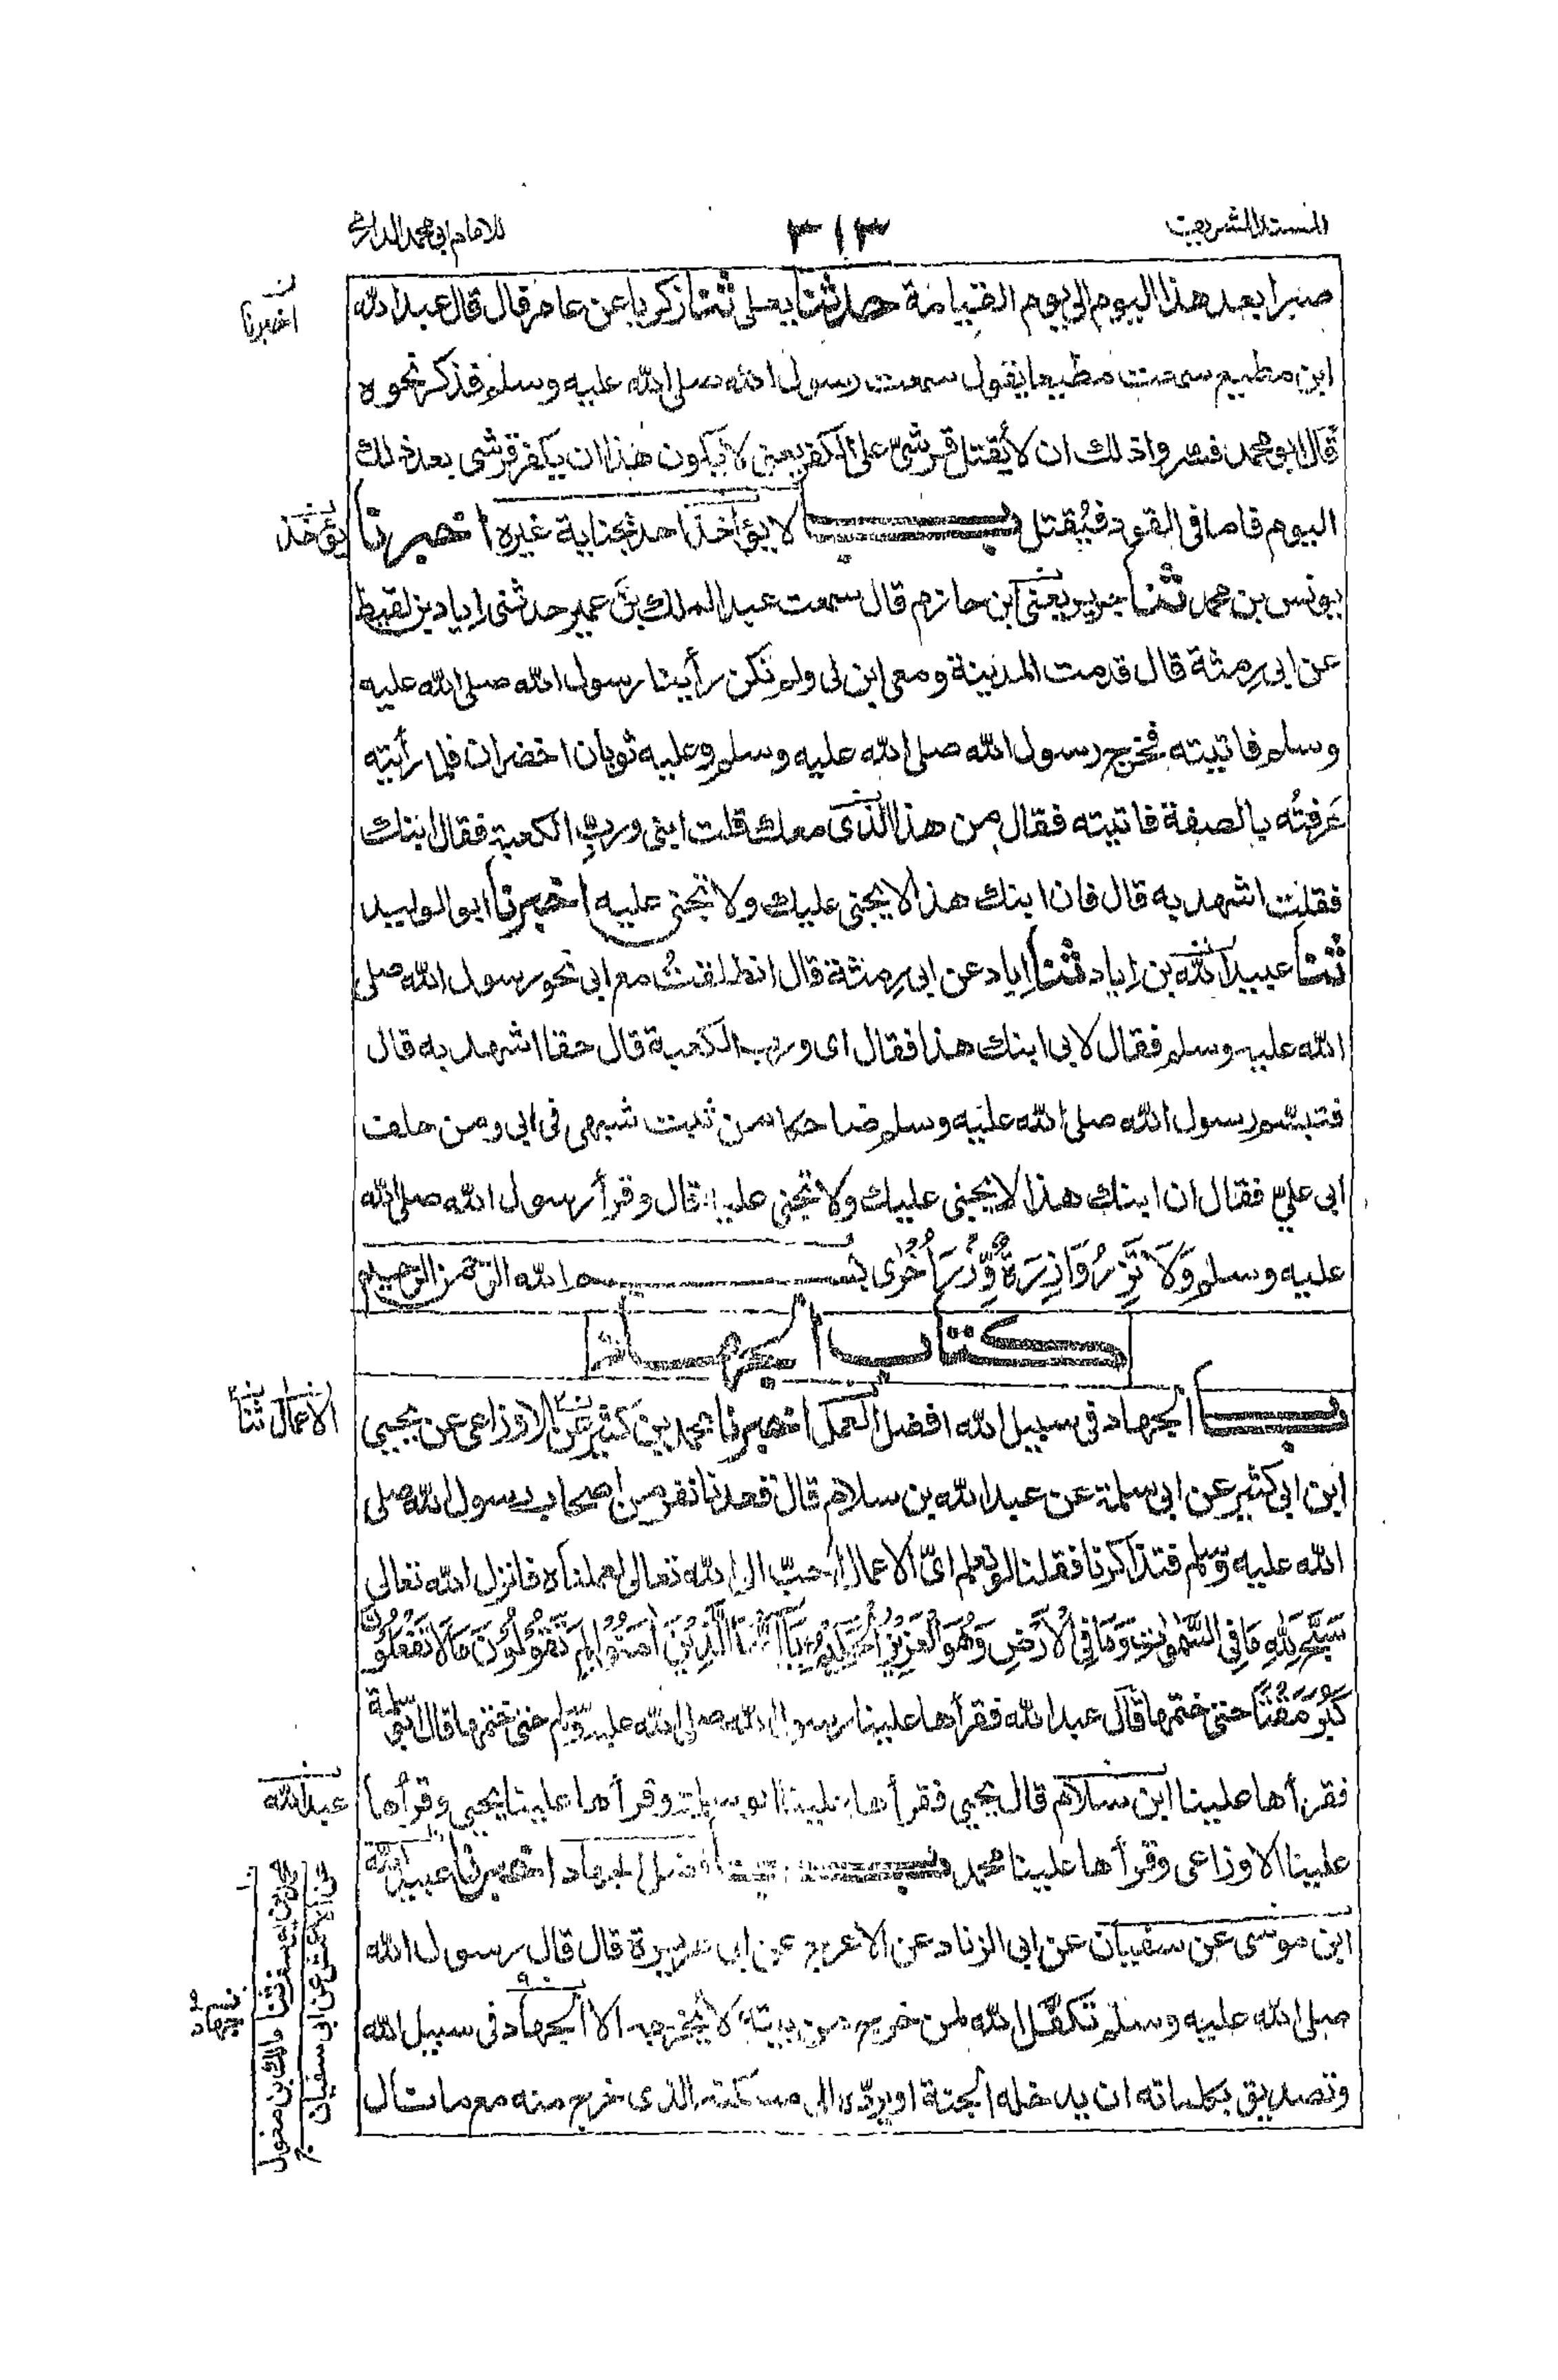 المسند الشريف
٣١٣
للامام ابى محمد الدارمى
صبرا بعد هذا اليوم الى يوم القيامة حدثنا يعلى ثنا زكريا عن عامر قال قال عبد الله
اخبرنا
ابن مطيع سمعت مطيعا يقول سمعت رسول الله صلى الله عليه وسلم فذكر نحوه
قال ابو محمد فسروا ذلك ان لا يقتل قرشىّ على الكفر يعنى لا يكون هذا ان يكفر قرشى بعد ذلك
اليوم فاما فى القود فيُقتل باب لا يؤاخذ احد بجناية غيره اخبرنا
يؤخذ
يونس بن محمد ثنا جرير يعنى ابن حازم قال سمعت عبد الملك بن عمير حدثنى اياد بن لقيط
عن ابى رِمثة قال قدمت المدينة ومعى ابن لى ولم نكن رأينا رسول الله صلى الله عليه
وسلم فاتيته فخرج رسول الله صلى الله عليه وسلم وعليه ثوبان اخضران فلما رأيته
عَرفتُه بالصفة فاتيته فقال من هذا الذى معك قلت ابنى وربِّ الكعبة فقال ابنك
فقلت اشهد به قال فان ابنك هذا لا يجنى عليك ولا تجنى عليه اخبرنا ابو الوليد
ثنا عبيد الله بن اياد ثنا اياد عن ابى رِمثة قال انطلقتُ مع ابى نحو رسول الله صلى
الله عليه وسلم فقال لابى ابنك هذا فقال اى ورب الكعبة قال حقا اشهد به قال
فتبسّم رسول الله صلى الله عليه وسلم ضاحكا من ثبت شبهى فى ابى ومن حلف
ابى علىّ فقال ان ابنك هذا لا يجنى عليك ولا تجنى عليه قال وقرأ رسول الله صلى الله
عليه وسلم وَلَا تَزِرُ وَازِرَةٌ وِّزْرَ أُخْرٰى بسم الله الرحمن الرحيم
كتاب الجهاد
باب الجهاد فى سبيل الله افضل العمل اخبرنا محمد بن كثير عن الاوزاعى عن يحيى
الاعمال ثنا
ابن ابى كثير عن ابى سلمة عن عبد الله بن سلام قال قعدنا نفر من اصحاب رسول الله صلى
الله عليه وسلم فتذاكرنا فقلنا لو نعلم اىّ الاعمال احبّ الى الله تعالى لعملناه فانزل الله تعالى
سَبَّحَ لِلّٰهِ مَا فِى السَّمٰوٰتِ وَمَا فِى الْاَرْضِ وَهُوَ الْعَزِيْزُ الْحَكِيْمُ يَآ اَيُّهَا الَّذِيْنَ اٰمَنُوْا لِمَ تَقُوْلُوْنَ مَا لَا تَفْعَلُوْنَ
كَبُرَ مَقْتًا حتى ختمها قال عبد الله فقرأها علينا رسول الله صلى الله عليه وسلم حتى ختمها قال ابو سلمة
فقرأها علينا ابن سلام قال يحيى فقرأها علينا ابو سلمة وقرأها علينا يحيى وقرأها
عبد الله
علينا الاوزاعى وقرأها علينا محمد باب افضل الجهاد اخبرنا عبيد الله
ابن موسى عن سفيان عن ابى الزناد عن الاعرج عن ابى هريرة قال قال رسول الله
صلى الله عليه وسلم تكفّل الله لمن خرج من بيته لا يخرجه الا الجهاد فى سبيل الله
وتصديق بكلماته ان يدخله الجنة او يردّه الى مسكنه الذى خرج منه مع ما نال
عن الاعمش عن ابى سفيان
ثنا مالك بن مغول